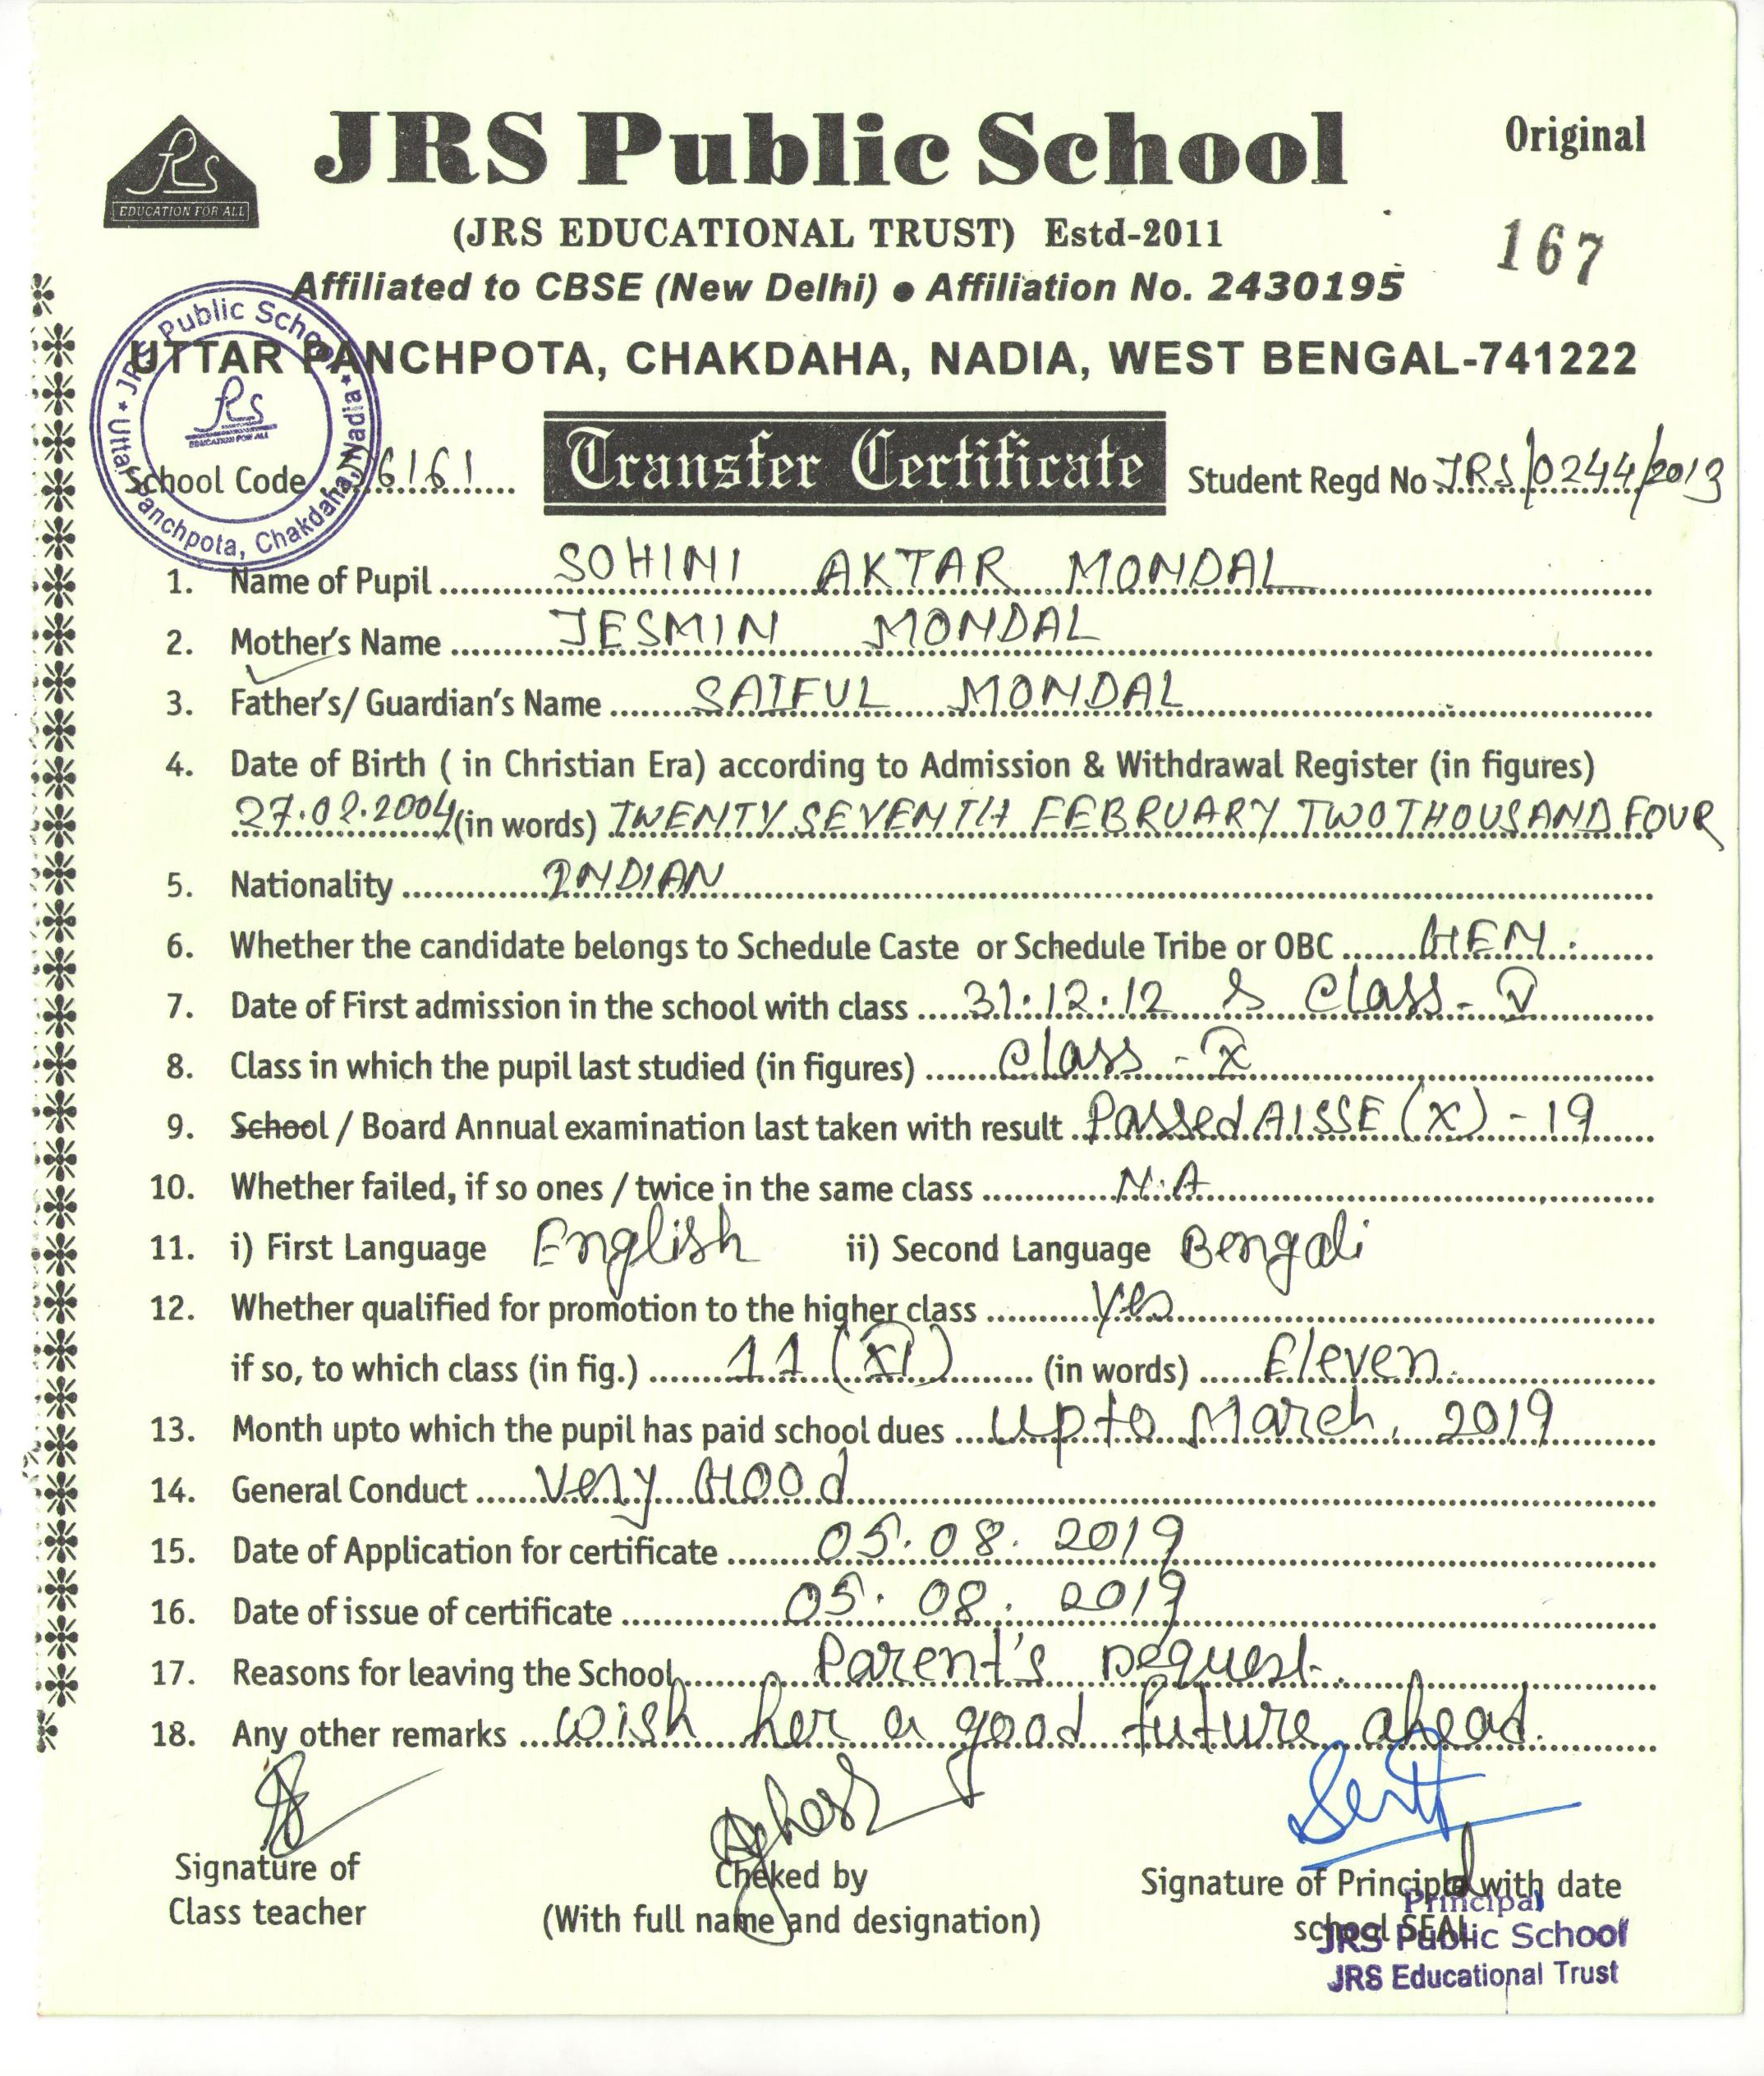 JRS Public School
Original
JRS
EDUCATION FOR ALL
(JRS EDUCATIONAL TRUST) Estd-2011
167
Affiliated to CBSE (New Delhi) ● Affiliation No. 2430195
UTTAR PANCHPOTA, CHAKDAHA, NADIA, WEST BENGAL-741222
JRS Public School * Uttar Panchpota, Chakdaha, Nadia *
JRS
EDUCATION FOR ALL
School Code 6161
Transfer Certificate
Student Regd No JRS/0244/2013
1. Name of Pupil SOHINI AKTAR MONDAL
2. Mother's Name JESMIN MONDAL
3. Father's/ Guardian's Name SAIFUL MONDAL
4. Date of Birth ( in Christian Era) according to Admission & Withdrawal Register (in figures)
27.02.2004 (in words) TWENTY SEVENTH FEBRUARY TWO THOUSAND FOUR
5. Nationality INDIAN
6. Whether the candidate belongs to Schedule Caste or Schedule Tribe or OBC GEN.
7. Date of First admission in the school with class 31.12.12 & Class - V
8. Class in which the pupil last studied (in figures) Class - X
9. School / Board Annual examination last taken with result Passed AISSE (X) - 19
10. Whether failed, if so ones / twice in the same class N.A
11. i) First Language English ii) Second Language Bengali
12. Whether qualified for promotion to the higher class Yes
if so, to which class (in fig.) 11 (XI) (in words) Eleven.
13. Month upto which the pupil has paid school dues upto March, 2019
14. General Conduct Very Good
15. Date of Application for certificate 05.08.2019
16. Date of issue of certificate 05.08.2019
17. Reasons for leaving the School Parent's request.
18. Any other remarks wish her a good future ahead.
Signature of
Class teacher
Cheked by
(With full name and designation)
Signature of Principal with date
school SEAL
Principal
JRS Public School
JRS Educational Trust